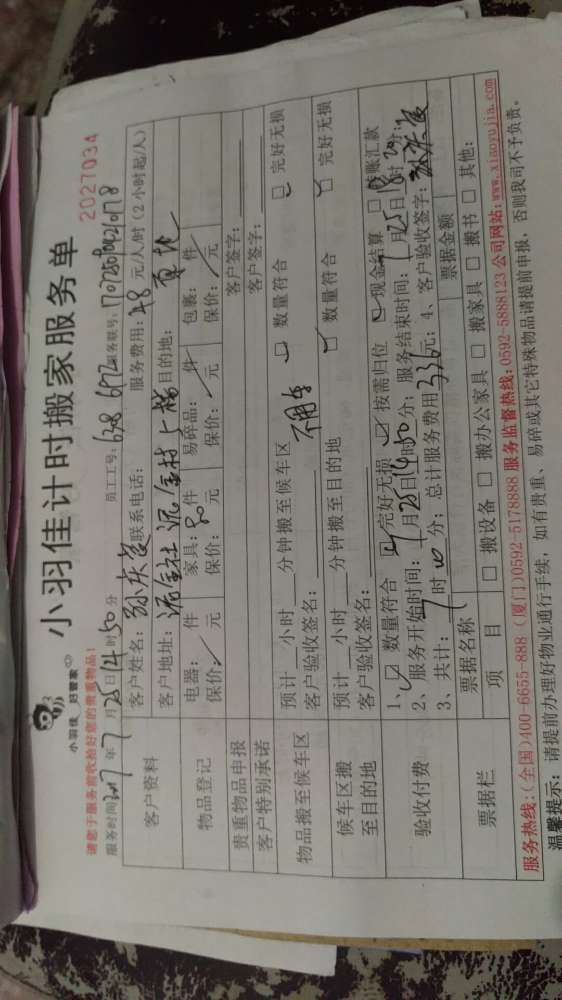 小羽佳 好管家
小羽佳计时搬家服务单
2027034
请您于服务前收拾好您的贵重物品!
服务时间2017年7月25日14时50分 员工工号: 678 692 服务联号: 170725
客户资料
客户姓名: 孙庆 联系电话: 服务费用: 48元/人/时 (2小时起/人)
客户地址: 泥金社 泥金村 上 目的地:
物品登记
电器: 件 家具: 20件 易碎品: 件 包裹: 件
保价: 元 保价: 元 保价: 元 保价: 元
贵重物品申报 客户签字:
客户特别承诺 客户签字:
物品搬至候车区
预计 小时 分钟搬至候车区 □ 数量符合 □ 完好无损
客户验收签名: 不用车
候车区搬至目的地
预计 小时 分钟搬至目的地 □ 数量符合 □ 完好无损
客户验收签名:
验收付费
1、☑ 数量符合 ☑ 完好无损 ☑ 按需归位 ☑ 现金结算 □ 转账汇款
2、服务开始时间: 7月25日14时50分; 服务结束时间: 7月25日18时20分;
3、共计: 时 分; 总计服务费用336元; 4、客户验收签字: 孙庆
票据栏
票据名称 票据金额
项目 □ 搬设备 □ 搬办公家具 □ 搬家具 □ 搬书 □ 其他:
服务热线:(全国)400-6655-888 (厦门)0592-5178888 服务监督热线:0592-5888123 公司网站:www.xiaoyujia.com
温馨提示: 请提前办理好物业通行手续, 如有贵重、易碎或其它特殊物品请提前申报, 否则我司不予负责。